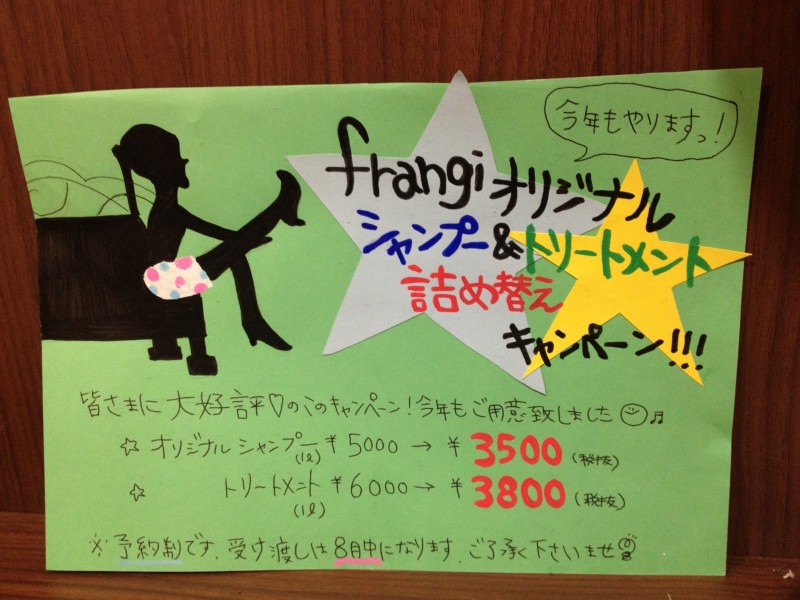 今年もやりますっ!
frangi オリジナル
シャンプー&トリートメント
詰め替え
キャンペーン!!!
皆さまに大好評♡のこのキャンペーン!今年もご用意致しました☺♬
☆ オリジナルシャンプー(1ℓ) ¥5000→ ¥3500(税抜)
☆ トリートメント(1ℓ) ¥6000→ ¥3800(税抜)
※予約制です。受け渡しは8月中になります。ご了承下さいませ